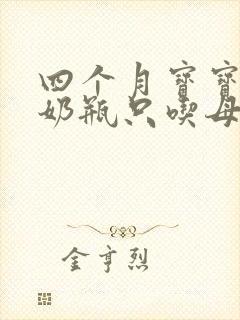 四个月宝宝
奶瓶只喫母
金亨烈